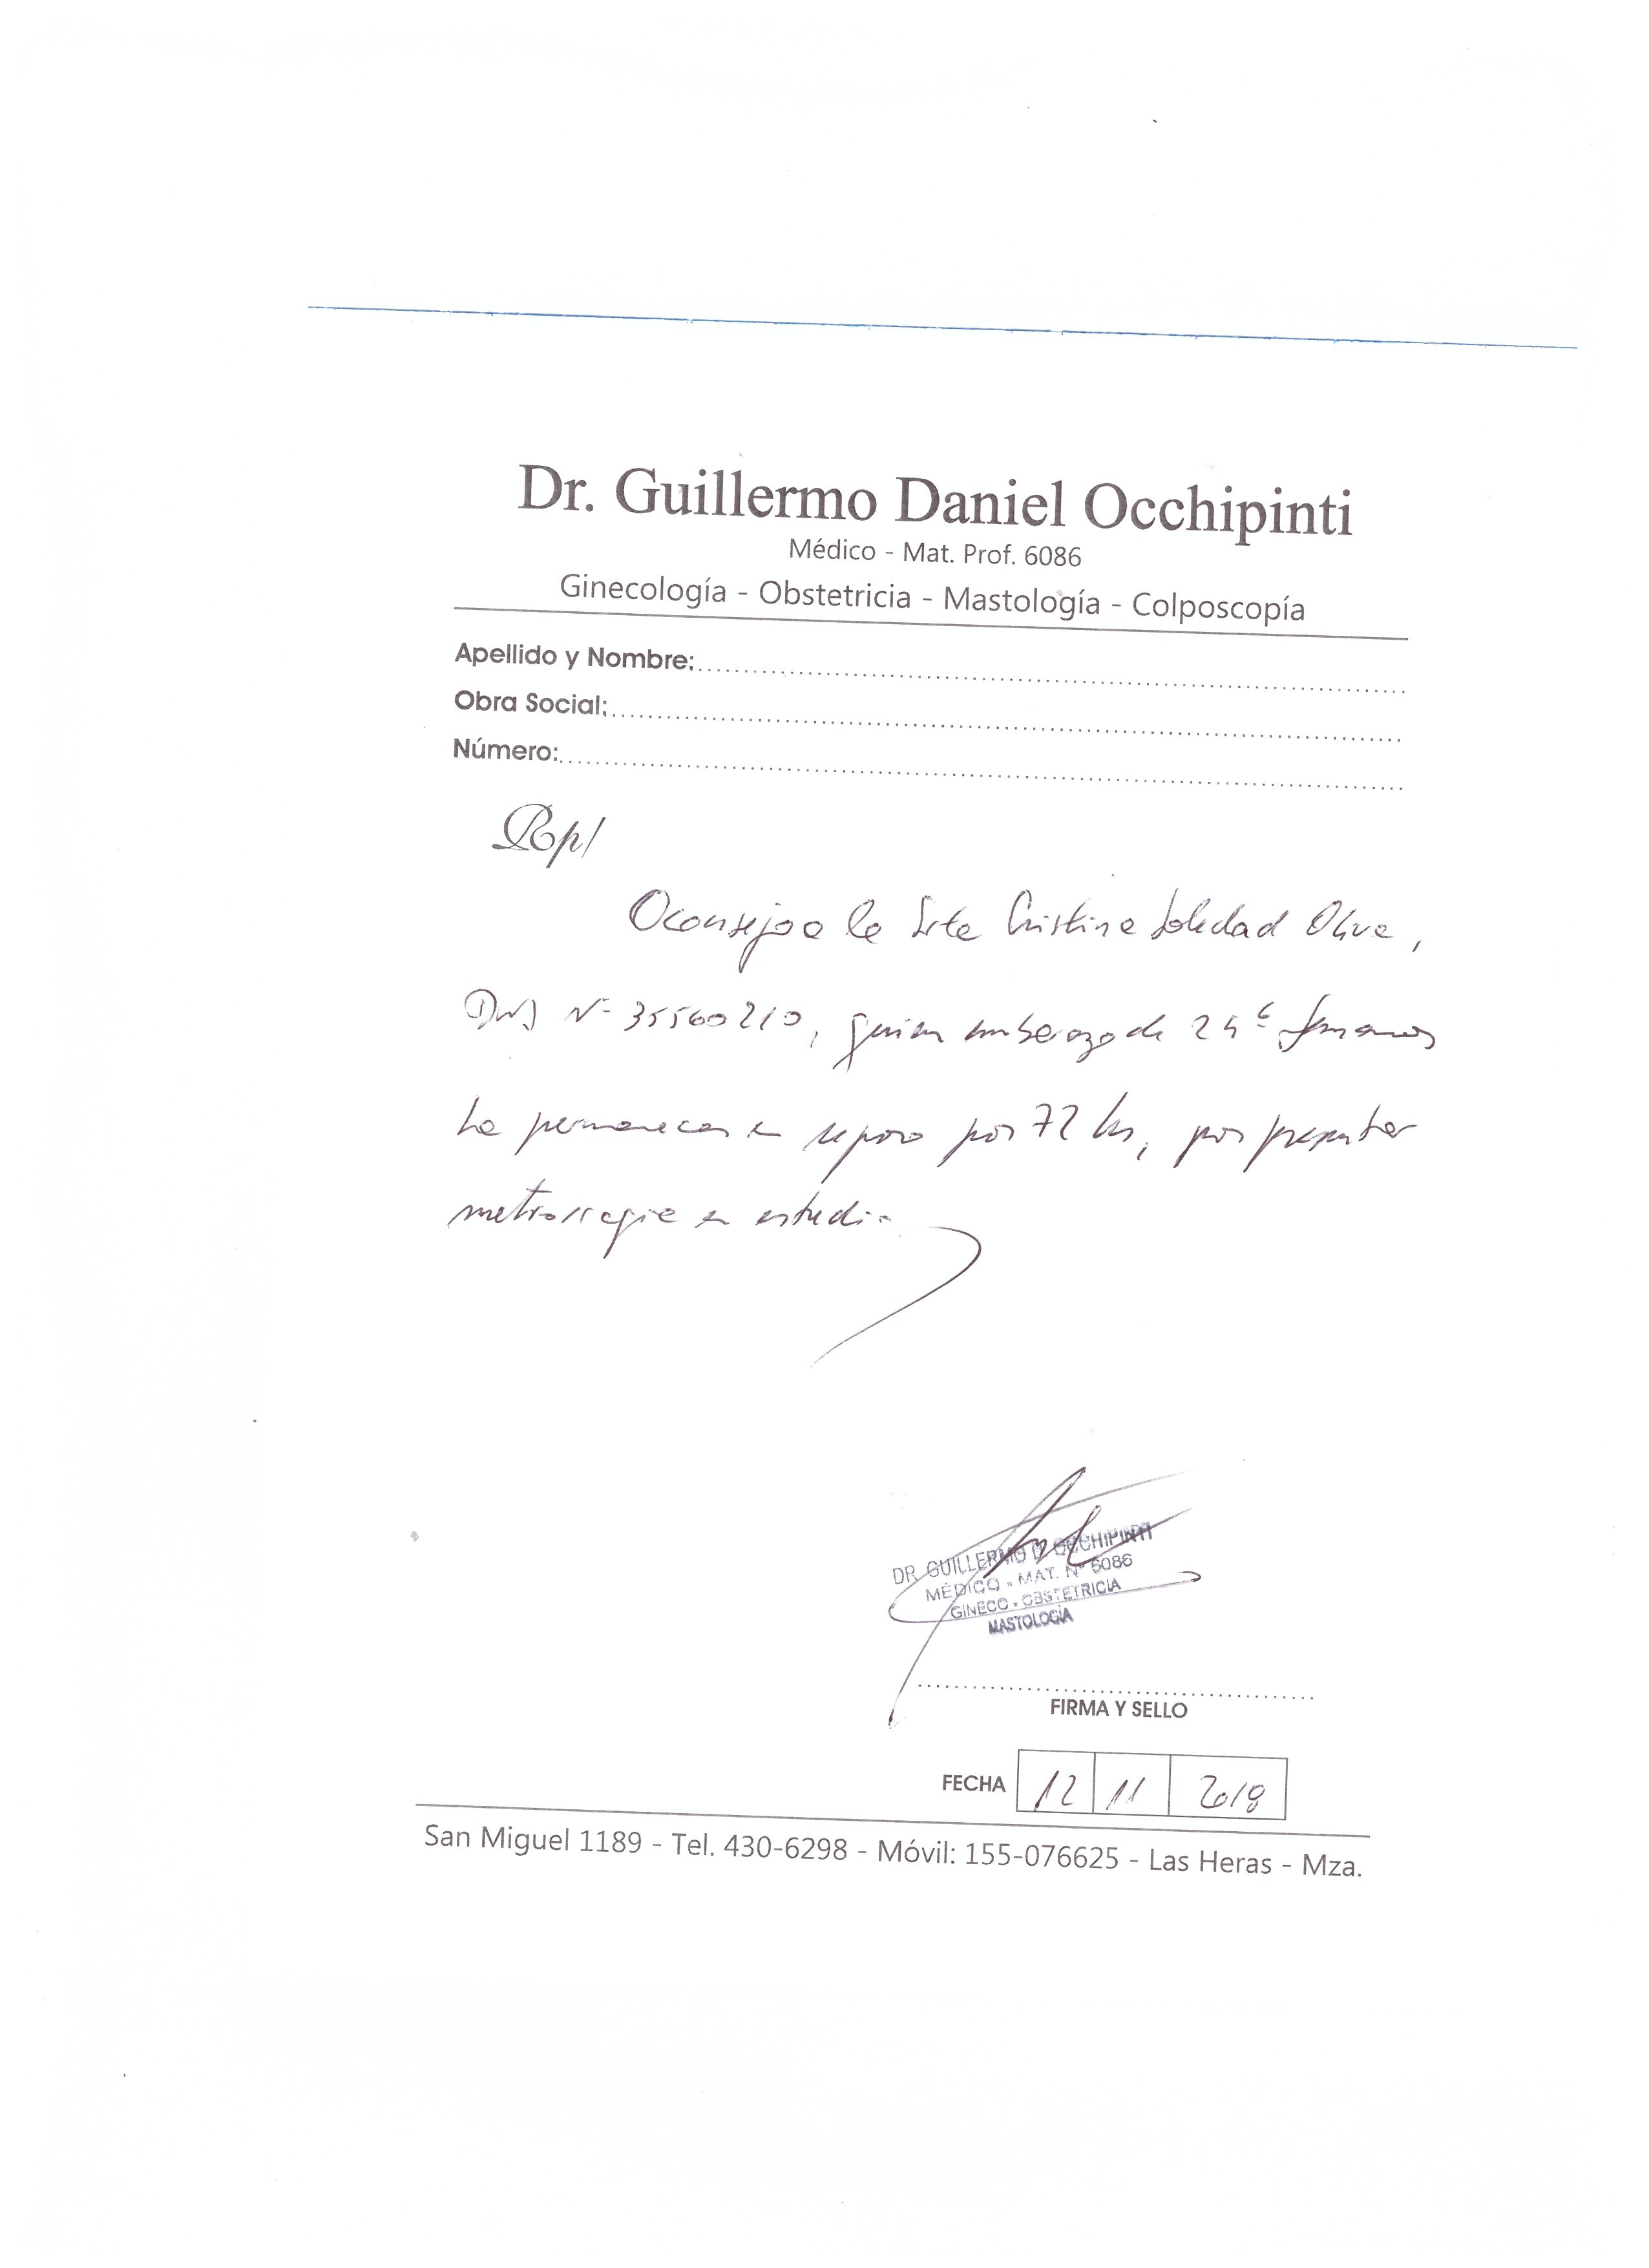 Dr. Guillermo Daniel Occhipinti
Médico - Mat. Prof. 6086
Ginecología - Obstetricia - Mastología - Colposcopía
Apellido y Nombre:
Obra Social:
Número:
Rp/
Aconsejo a la Srta Cristina Soledad Oliva,
DNI Nº 35560210, embarazo de semanas
permanecer en reposo por 72 hs, por presentar
metrorragia en estudio
DR. GUILLERMO D. OCCHIPINTI
MÉDICO - MAT. Nº 6086
GINECO - OBSTETRICIA
MASTOLOGÍA
FIRMA Y SELLO
FECHA 12 11 2018
San Miguel 1189 - Tel. 430-6298 - Móvil: 155-076625 - Las Heras - Mza.